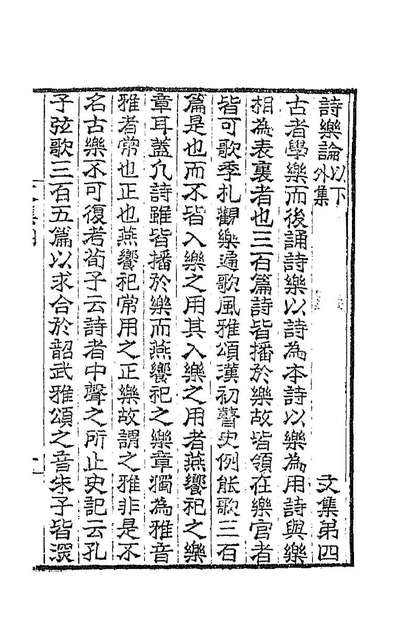 詩樂論以下外集　文集第四
古者學樂而後誦詩樂以詩為本詩以樂為用詩與樂
相為表裏者也三百篇詩皆播於樂故皆領在樂官者
皆可歌季札觀樂遍歌風雅頌漢初瞽史例能歌三百
篇是也而不皆入樂之用其入樂之用者燕饗祀之樂
章耳蓋凢詩雖皆播於樂而燕饗祀之樂章獨為雅音
雅者常也正也燕饗祀常用之正樂故謂之雅非是不
名古樂不可復考荀子云詩者中聲之所止史記云孔
子弦歌三百五篇以求合於韶武雅頌之音朱子皆深